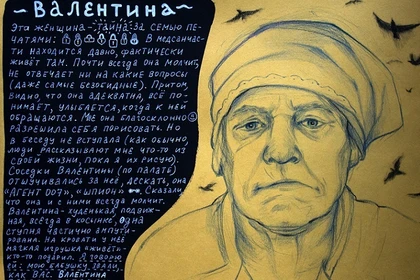 ~ Валентина ~
Эта женщина - тайна за семью пе-
чатями: В медсанчас-
ти находится давно, фактически
живёт там. Почти всегда она молчит,
не отвечает ни на какие вопросы
(даже самые безобидные). Притом,
видно, что она адекватна, всё по-
нимает, улыбается, когда к ней
обращаются. Мне она благосклонно
разрешила себя порисовать. Но
в беседу не вступала (как обычно,
люди рассказывают мне что-то из
своей жизни, пока я их рисую).
Соседки Валентины (по палате)
отшучивались за неё, дескать, она
«Агент 007», «шпион» Сказали,
что она и с ними всегда молчит.
Валентина - худенькая, подвиж-
ная, всегда в косынке, одна
ступня частично ампути-
рована. На кровати у неё
мягкая игрушка «живёт»-
кто-то подарил. Я говорю
ей: мою бабушку звали,
как Вас. Валентина